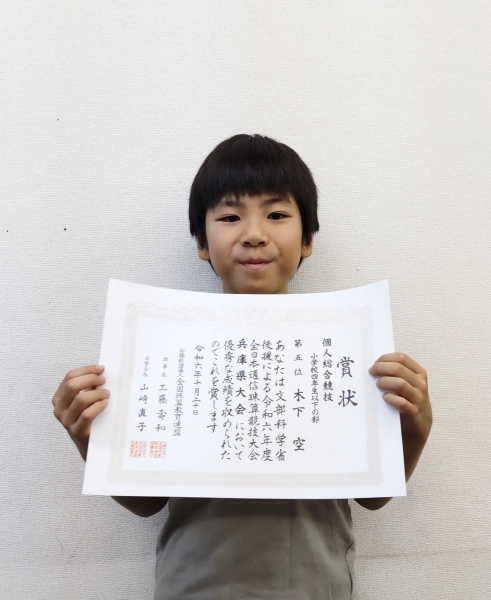 賞状
個人総合競技
小学校四年生以下の部
第五位 木下 空
あなたは文部科学省
後援による令和六年度
全日本通信珠算競技大会
兵庫県大会において
優秀な成績を収められた
のでこれを賞します
令和六年十月二十日
公益社団法人全国珠算教育連盟
理事長 工藤壽和
山﨑直子